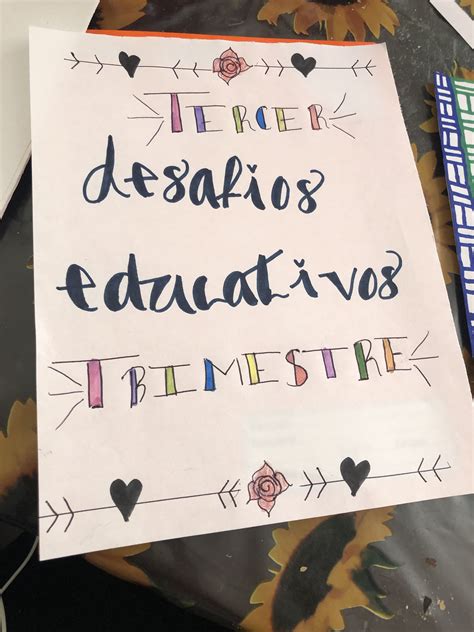 TERCER
desafios
educativos
TRIMESTRE